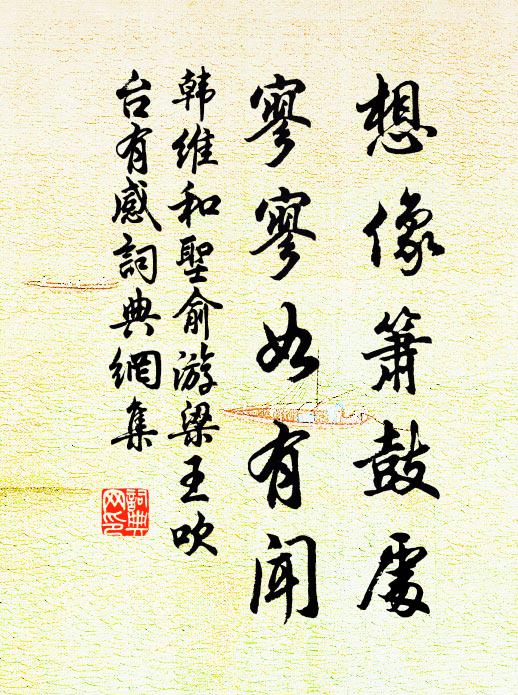 想像箫鼓处
寥寥如有闻
韩维和聖俞游梁王吹
台有感詞典網集
詞典
网印